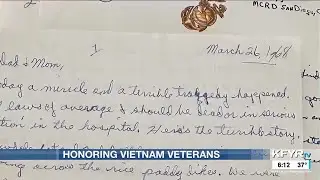 MCRD San Diego, C
1
March 26, 1968
Dad & Mom,
day a miracle and a terrible traggedy happened.
laws of average I should be dead or in serious
tion in the hospital. Here's the turrible story.
ing across the rice paddy dikes. We were
HONORING VIETNAM VETERANS
KFYR TV
6:12 37°